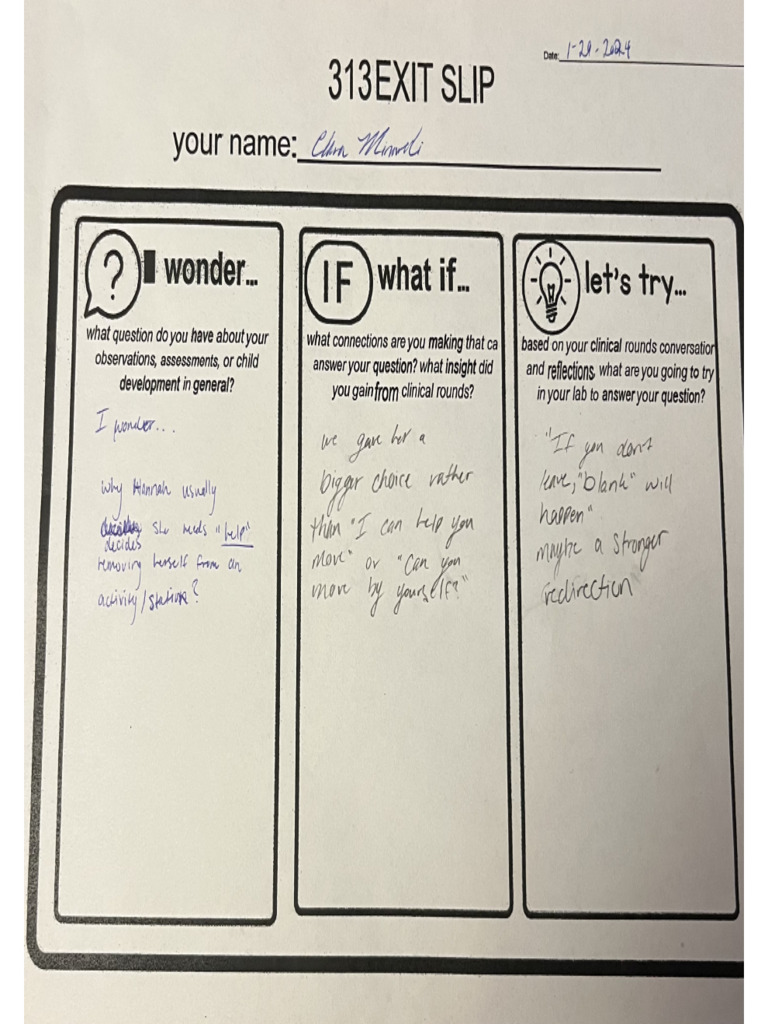 Date: 1-29-2024
313 EXIT SLIP
your name: Clara
? I wonder...
what question do you have about your
observations, assessments, or child
development in general?
I wonder...
why Hannah usually
decides she needs "help"
removing herself from an
activity/station?
IF what if...
what connections are you making that ca
answer your question? what insight did
you gain from clinical rounds?
we gave her a
bigger choice rather
than "I can help you
move" or "Can you
move by yourself?"
let's try...
based on your clinical rounds conversation
and reflections, what are you going to try
in your lab to answer your question?
"If you don't
leave, "blank" will
happen"
maybe a stronger
redirection